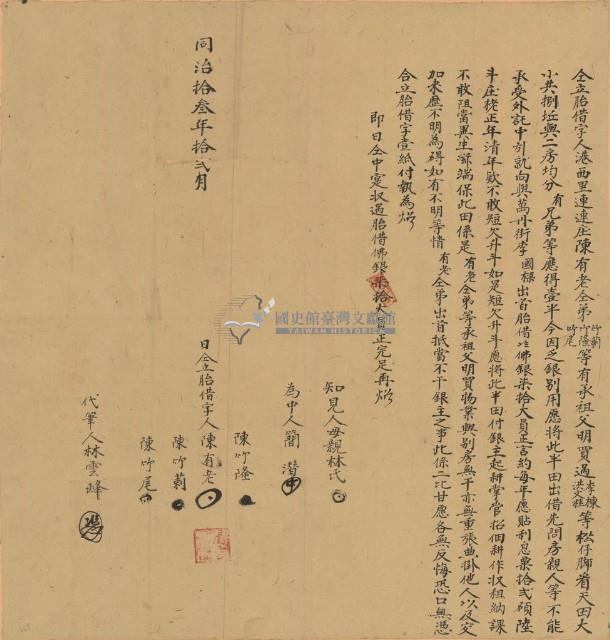 仝立胎借字人港西里連連庄陳有老仝弟竹蔔竹隆竹尾等有承祖父明買過李棟洪文桂等松仔脚看天田大
小共捌坵與二房均分有兄弟等應得壹半今因乏銀別用應將此半田出借先問房親人等不能
承受外託中引就向與萬丹街李國樑出首胎借出佛銀柒拾大員正言約每年愿貼利息粟拾弍碩陸
斗庄栳正年清年款不敢短欠升斗如是短欠升斗應將此半田付銀主起耕掌管招佃耕作收租納課
不敢阻當異生滋端保此田係是有老仝弟等承祖父明買物業與別房無干亦無重張典掛他人以及交
加來歷不明為碍如有不明等情有老仝弟出首抵當不干銀主之事此係二比甘愿各無反悔恐口無憑
合立胎借字壹紙付執為炤
即日仝中寔收過胎借佛銀柒拾大員正完足再炤
知見人母親林氏
為中人簡潛
陳竹隆
日仝立胎借字人陳有老
陳竹蔔
陳竹尾
代筆人林雲峰
同治拾叁年拾弍月
國史館臺灣文獻館
TAIWAN HISTORICA